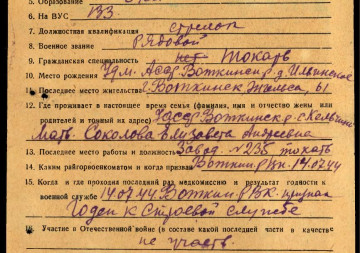 5. Образование
6. На ВУС 133
7. Должностная квалификация стрелок
8. Военное звание Рядовой
9. Гражданская специальность нет токарь
10. Место рождения Удм. Асср Воткинск. р. д.
11. Последнее место жительства г. Воткинск 61
12. Где проживает в настоящее время семья (фамилия, имя и отчество жены или
родителей и точный адрес) Уасср Воткинск. р. с.
Мать Соколова Елизавета Андреевна
13. Последнее место работы и должность Завод № 235 токарь
14. Каким райгорвоенкоматом и когда призван Воткин. 14.07.44
15. Когда и где проходил последний раз медкомиссию и результат годности к
военной службе 14.07.44 Воткин. РВК. признан
Годен к строевой службе
16. Участие в Отечественной войне (в составе какой последней части в качестве
не участв.